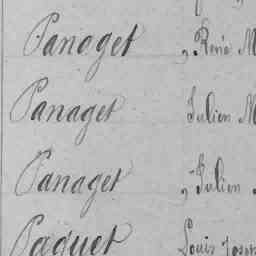 Panaget, René M
Panaget Julien M
Panaget, Julien
Paquet Louis Josep